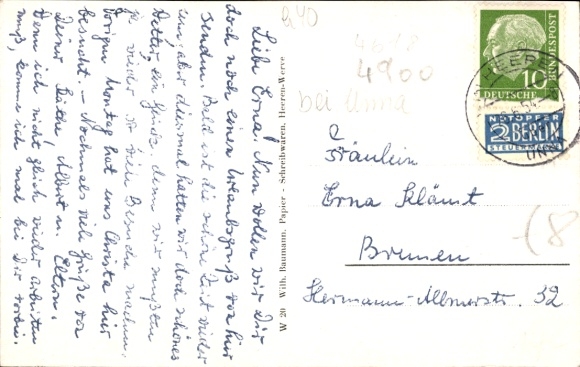 Liebe Erna. Nun wollen wir Dir
doch noch einen Urlaubsgruß von hier
senden. Bald ist die schöne Zeit wieder
um, aber diesmal hatten wir doch schönes
Wetter, ein Glück, denn wir mußten
ja wieder so viele Besuche machen.
Vorigen Montag hat uns Christa hier
besucht. – Nochmals viele Grüße von
Deiner Käthe, Albert u. Eltern.
Wenn ich nicht gleich wieder arbeiten
muß, komme ich mal bei Dir vorbei.
W 20 Wilh. Baumann, Papier- Schreibwaren, Heeren-Werve
4618
4900
bei Unna
10
DEUTSCHE
BUNDESPOST
HEEREN
UNNA
NOTOPFER
2 BERLIN
STEUERMARKE
Fräulein
Erna Klämt
Bremen
Hermann-Allmersstr. 32
(8